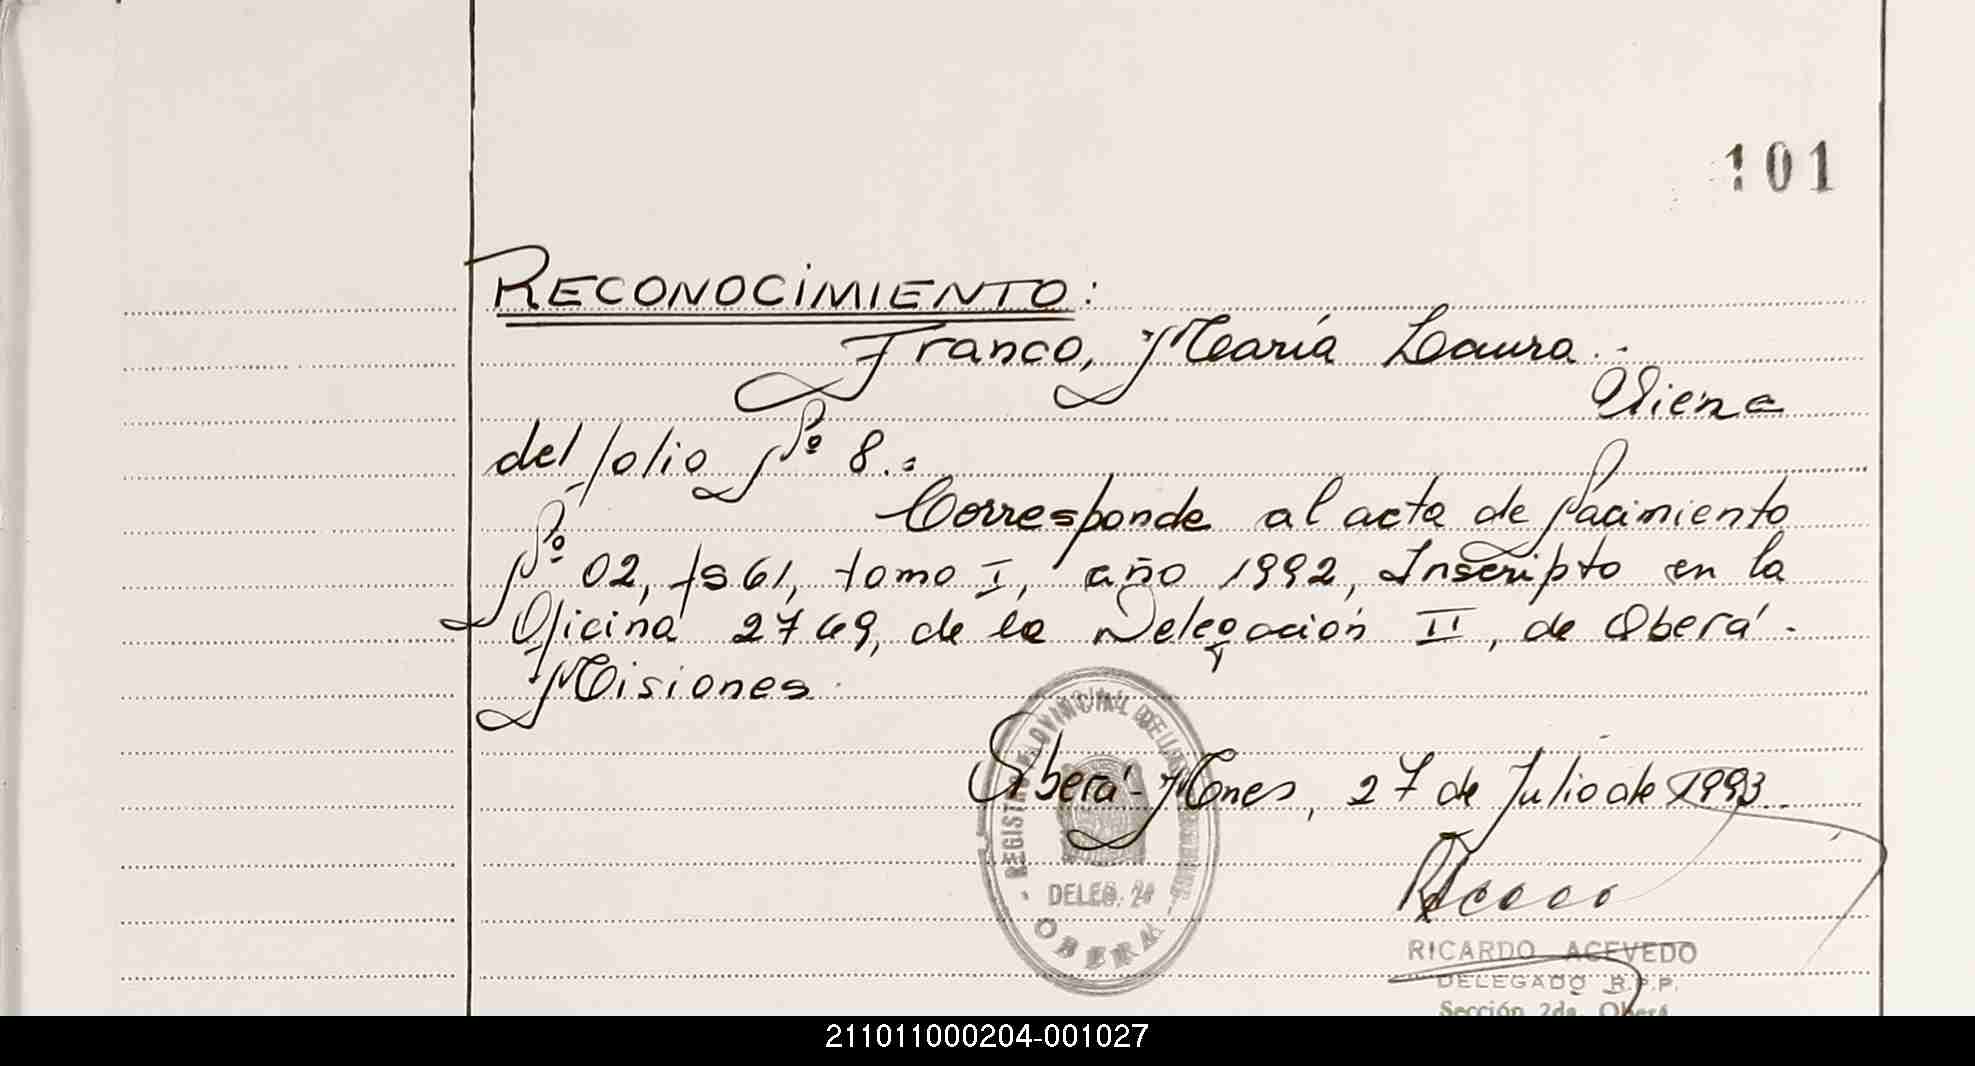 101
RECONOCIMIENTO:
Franco, María Laura.-
Viene
del folio Nº 8.-
Corresponde al acta de Nacimiento
Nº 02, fs 61, tomo I, año 1992, Inscripto en la
Oficina 2769, de la Delegación II, de Oberá-
Misiones.
Oberá-Mnes, 27 de Julio de 1993.
REGISTRO PROVINCIAL DE LAS
DELEG. 2ª
OBERA
RICARDO ACEVEDO
DELEGADO R.P.P.
Sección 2da. Oberá
211011000204-001027